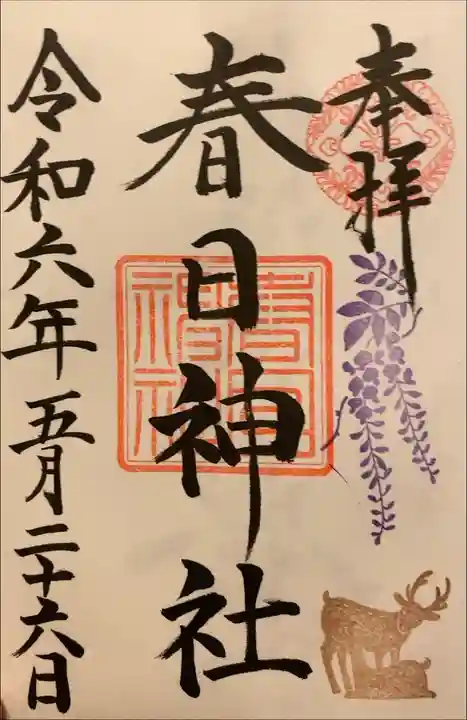 奉拝
春日神社
春日神社
令和六年五月二十六日